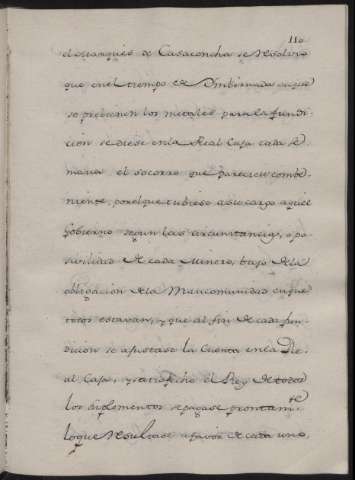 110
el Marques de Casaconcha se resolvio
que en el tiempo de Imbernada en que
se previenen los metales para la fundi
cion se diese en la Real Caja cada se
mana el socorro que pareciese combe
niente, por el que tubiese a su cargo aquel
Govierno segun las circunstancias, o po
sivilidad de cada Minero, bajo de la
obligacion de la Mancomunidad en que
todos estavan, y que al fin de cada fun
dicion se ajustase la Cuenta en la Re
al Caja, y satisfecho el Rey de todos
los suplementos se pagase prontam.te
lo que resultase a favor de cada uno,